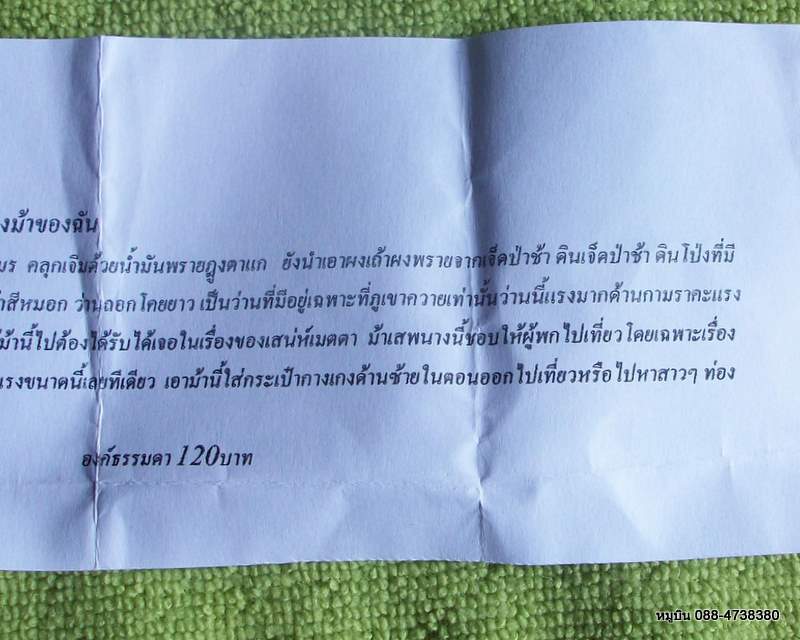 งม้าของฉัน
มร คลุกเจิมด้วยน้ำมันพรายกฎุงตาแก ยังนำเอาผงเถ้าผงพรายจากเจ็ดป่าช้า ดินเจ็ดป่าช้า ดินโป่งที่มี
สีหมอก ว่านถอกโคยยาว เป็นว่านที่มีอยู่เฉพาะที่ภูเขาควายเท่านั้นว่านนี้แรงมากด้านกามราคะแรง
ม้านี้ไปต้องได้รับได้เจอในเรื่องของเสน่ห์เมตตา ม้าเสพนางนี้ชอบให้ผู้พกไปเที่ยวโดยเฉพาะเรื่อง
แรงขนาดนี้เลยทีเดียว เอาม้านี้ใส่กระเป๋ากางเกงด้านซ้ายในตอนออกไปเที่ยวหรือไปหาสาวๆ ท่อง
องค์ธรรมดา 120บาท
หมูบิน 088-4738380